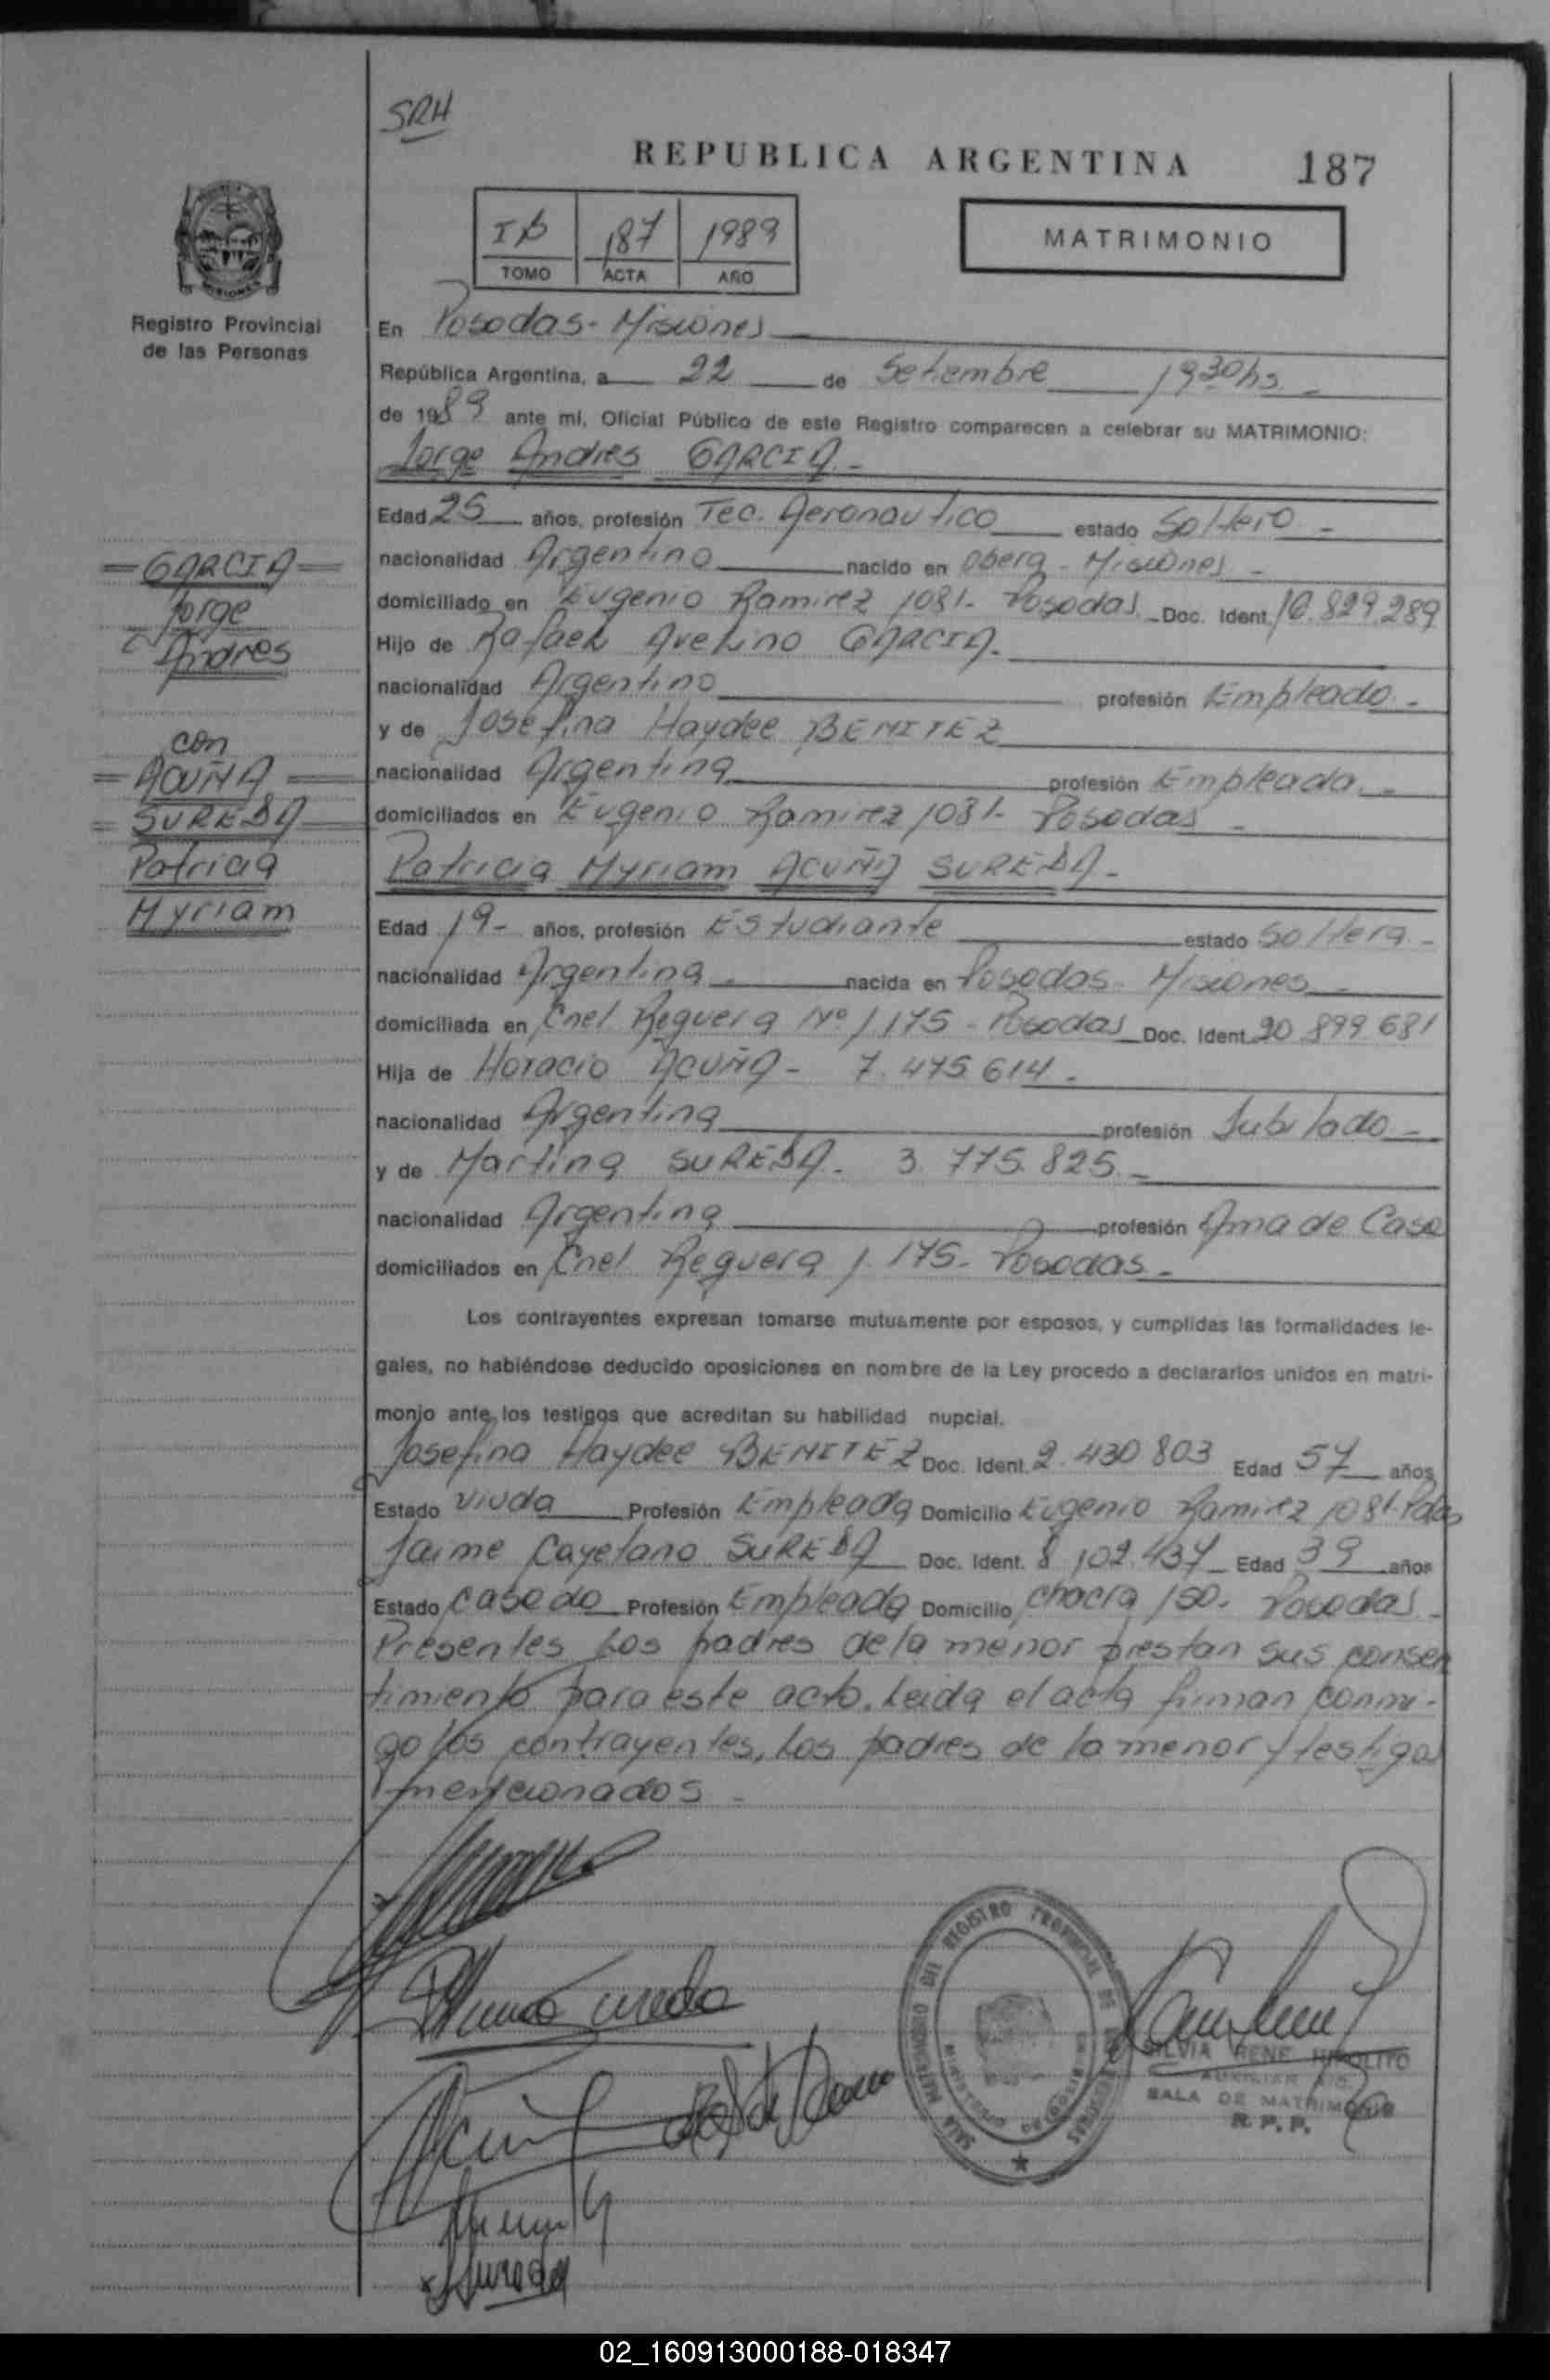 SRH
REPUBLICA ARGENTINA 187
187 1989
TOMO ACTA AÑO
MATRIMONIO
MISIONES
Registro Provincial
de las Personas
En Posadas - Misiones
República Argentina, a 22 de Setiembre 1930hs.
de 1989 ante mi, Oficial Público de este Registro comparecen a celebrar su MATRIMONIO:
Jorge Andres GARCIA.-
Edad 25 años, profesión Tec. Aeronautico estado Soltero -
nacionalidad Argentino nacido en Obera - Misiones -
domiciliado en Eugenio Ramirez 1081- Posadas Doc. Ident. 16.829.289
Hijo de Rafael Avelino GARCIA.
nacionalidad Argentino profesión Empleado -
y de Josefina Haydee BENITEZ
nacionalidad Argentina profesión Empleada. -
domiciliados en Eugenio Ramirez 1081- Posadas -
Patricia Myriam ACUÑA SUREDA -
Edad 19- años, profesión Estudiante estado Soltera -
nacionalidad Argentina - nacida en Posadas - Misiones -
domiciliada en Cnel Reguera Nº 1175 - Posadas Doc. Ident. 20.899.681
Hija de Horacio ACUÑA - 7.475.614 -
nacionalidad Argentina profesión Jubilado -
y de Martina SUREDA. 3.775.825 -
nacionalidad Argentina profesión Ama de Casa
domiciliados en Cnel Reguera 1.175- Posadas -
Los contrayentes expresan tomarse mutuamente por esposos, y cumplidas las formalidades le-
gales, no habiéndose deducido oposiciones en nombre de la Ley procedo a declararlos unidos en matri-
monio ante los testigos que acreditan su habilidad nupcial.
Josefina Haydee BENITEZ Doc. Ident. 2.430.803 Edad 57 años
Estado Viuda Profesión Empleada Domicilio Eugenio Ramirez 1081-Pdas
Jaime Cayetano SUREDA Doc. Ident. 8.102.437 Edad 39 años
Estado Casado Profesión Empleado Domicilio chacra 150. Posadas -
Presentes los padres de la menor prestan sus consen
timiento para este acto. Leida el acta firman conmi-
go los contrayentes, los padres de la menor y testigos
mencionados -
= GARCIA =
Jorge
Andres
con
= ACUÑA =
= SUREDA
Patricia
Myriam
SALA MATRIMONIO DEL REGISTRO PROVINCIAL DE LAS PERSONAS
SILVIA RENE HIPOLITO
AUXILIAR
SALA DE MATRIMONIO
R. P. P.
02_160913000188-018347